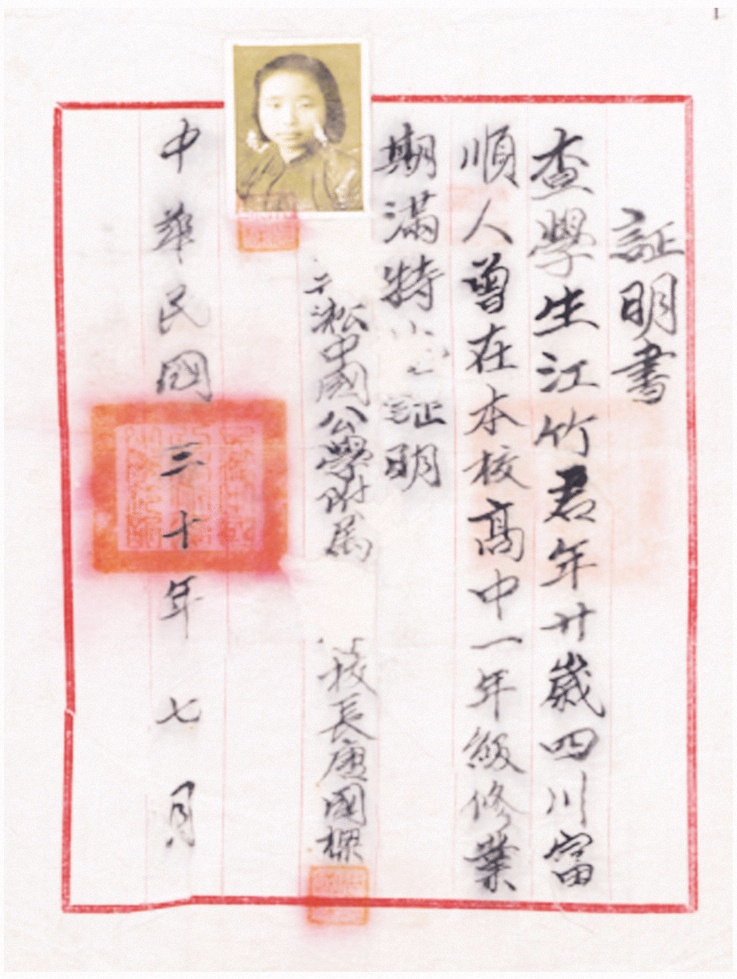 証明書
查學生江竹君年廿歲四川富
順人曾在本校高中一年級修業
期滿特 証明
淞中國公學附属 校長唐國樑
中華民國三十年七月